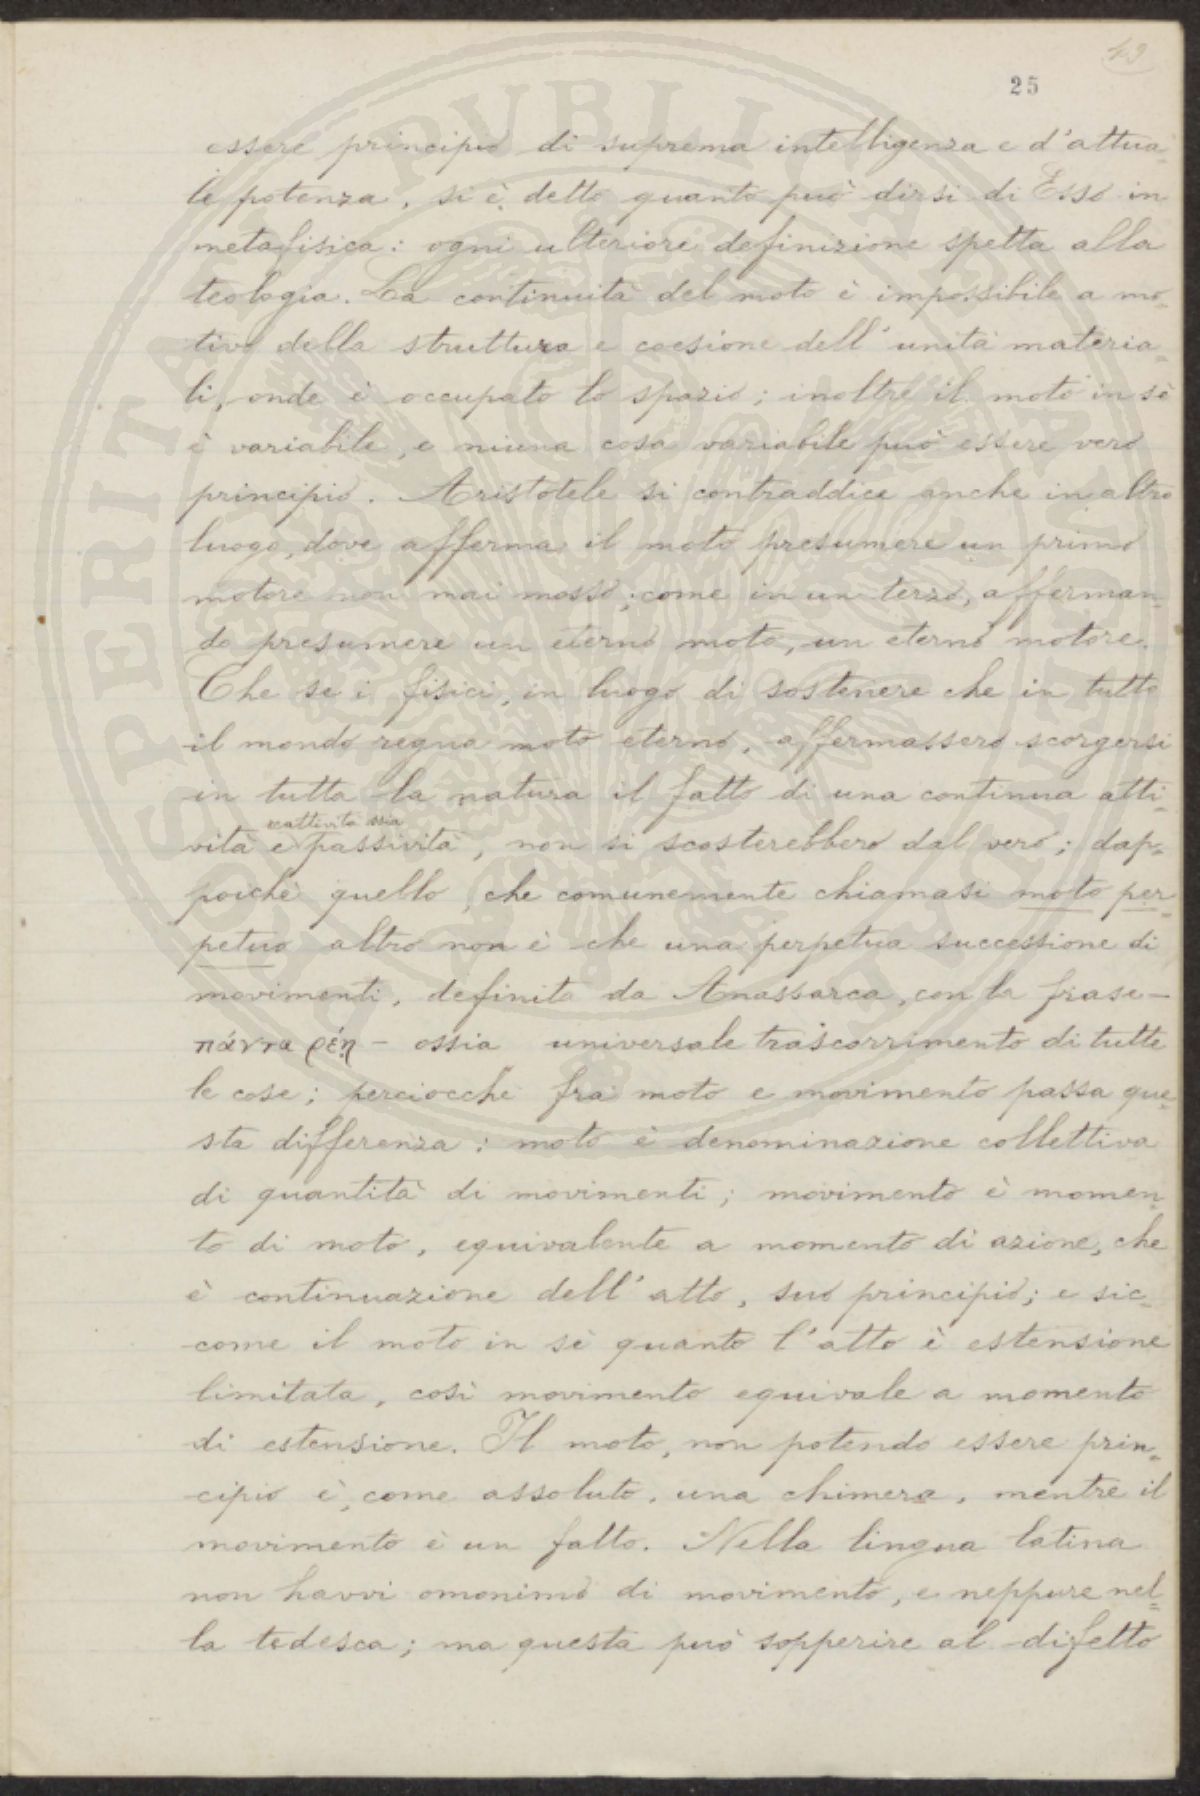 49
25
essere principio di suprema intelligenza e d'attua-
le potenza, si è detto quanto può dirsi di Esso in
metafisica: ogni ulteriore definizione spetta alla
teologia. La continuità del moto è impossibile a mo-
tivo della struttura e coesione dell'unità materia-
li, onde è occupato lo spazio; inoltre il moto in sè
è variabile, e niuna cosa variabile può essere vero
principio. Aristotele si contraddice anche in altro
luogo, dove afferma il moto presumere un primo
motore non mai mosso; come in un terzo, afferman-
do presumere un eterno moto, un eterno motore.
Che se i fisici, in luogo di sostenere che in tutto
il mondo regna moto eterno, affermassero scorgersi
in tutta la natura il fatto di una continua atti-
reattività ossia
vità e passività, non si scosterebbero dal vero; dap-
poichè quello, che comunemente chiamasi moto per-
petuo altro non è che una perpetua successione di
movimenti, definita da Anassarca, con la frase -
πάντα ρέη - ossia universale trascorrimento di tutte
le cose; perciocche fra moto e movimento passa que-
sta differenza: moto è denominazione collettiva
di quantità di movimenti; movimento è momen-
to di moto, equivalente a momento di azione, che
è continuazione dell'atto, suo principio; e sic-
come il moto in sè quanto l'atto è estensione
limitata, così movimento equivale a momento
di estensione. Il moto, non potendo essere prin-
cipio è, come assoluto, una chimera, mentre il
movimento è un fatto. Nella lingua latina
non havvi omonimo di movimento, e neppure nel-
la tedesca; ma questa può sopperire al difetto
PROSPERITATI PVBLICAE AVGENDAE